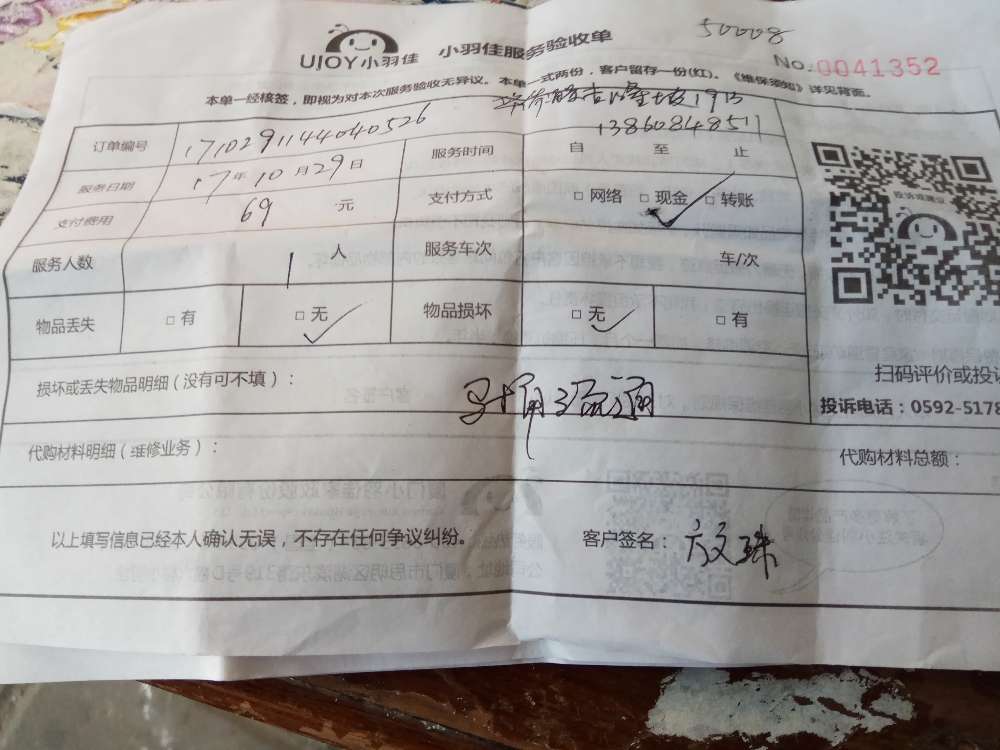 50008
UJOY小羽佳 小羽佳服务验收单
No.0041352
本单一经核签，即视为对本次服务验收无异议。本单一式两份，客户留存一份(红)。《维保须知》详见背面。
订单编号 1710291144040526
服务时间 13860848511
自 至 止
服务日期 17年10月29日
支付费用 69 元
支付方式 □网络 □现金 ✓ □转账
服务人数 1 人
服务车次 车/次
物品丢失 □有 □无 ✓
物品损坏 □无 ✓ □有
损坏或丢失物品明细（没有可不填）：
扫码评价或投诉
投诉电话：0592-5178
代购材料明细（维修业务）：
代购材料总额：
以上填写信息已经本人确认无误，不存在任何争议纠纷。
客户签名：方文珠